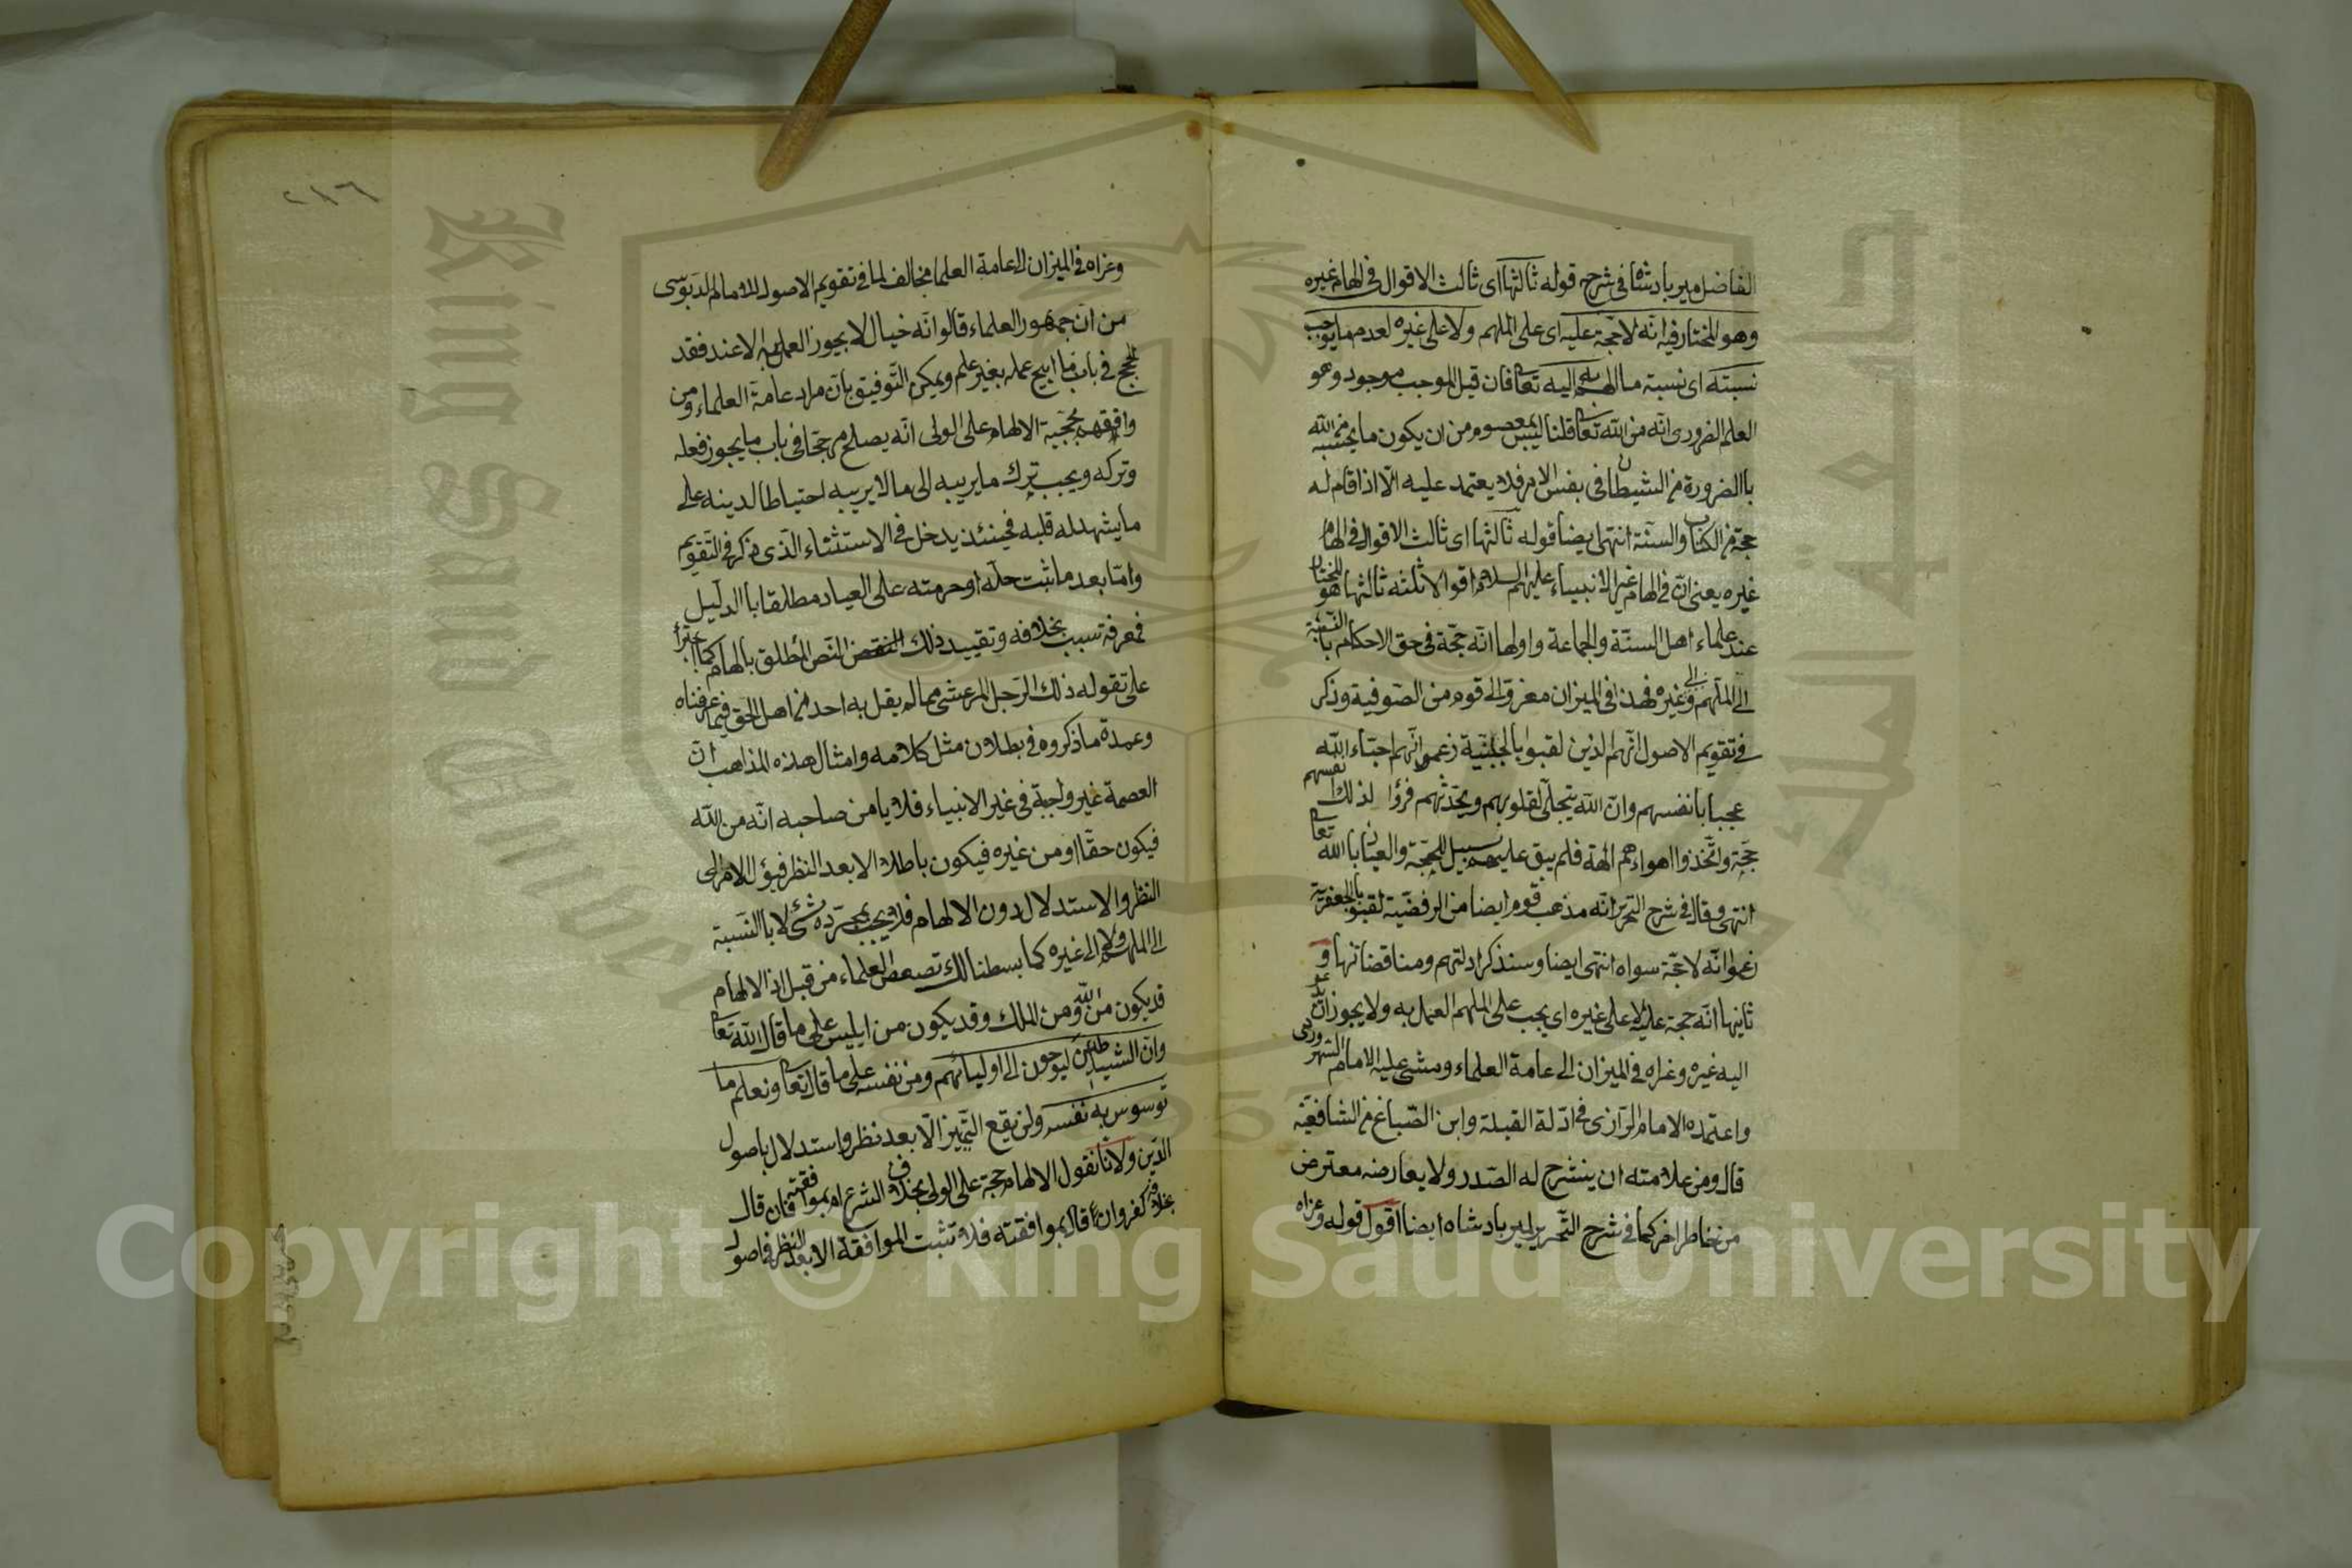 الفاضل ميربادشاه في شرح قوله ثالثها اى ثالث الاقوال في الهام غيره
وهو المختار فيه انه لا حجة عليه اى على الملهم ولا على غيره لعدم ما يوجب
نسبته اى نسبة ما الهم به اليه تعا فان قيل الموجب موجود وهو
العلم الضرورى انه من الله تعا قلنا ليس بمعصوم من ان يكون ما يحسبه من الله
باالضرورة من الشيطان في نفس الامر فلا يعتمد عليه الا اذا قام له
حجة من الكتاب والسنة انتهى ايضا قوله ثالثها اى ثالث الاقوال في الهام
غيره يعنى ان في الهام غير الانبياء عليهم السلام اقوالا ثلثه ثالثها هو المختار
عند علماء اهل السنة والجماعة واولها انه حجة في حق الاحكام باالنسبة
الى الملهم والى غيره فهذا في الميزان معزو الى قوم من الصوفية وذكر
في تقويم الاصول انهم الذين لقبوا بالجبية زعموا انهم احباء الله
عجبا بانفسهم وان الله يتجلى لقلوبهم ويحدثهم فرؤا لذلك نفسهم
حجة واتخذوا اهواءهم الهة فلم يبق عليهم سبيل للحجة والعياذ باالله تعا
انتهى وقال في شرح التحرير انه مذهب قوم ايضا من الرفضية لقبوا بالجعفرية
زعموا انه لا حجة سواه انتهى ايضا وسنذكر ادلتهم ومناقضاتها و
ثانيها انه حجة عليه لا على غيره اى يجب على الملهم العمل به ولا يجوز ان يدعو
اليه غيره وعزاه في الميزان الى عامة العلماء ومشى عليه الامام السهروردى
واعتمده الامام الرازى في ادلة القبلة وابن الصباغ من الشافعية
قال ومن علامته ان ينشرح له الصدر ولا يعارضه معترض
من خاطر اخر كما في شرح التحرير لمير بادشاه ايضا اقول قوله وعزاه
٢٨٦
وعزاه في الميزان الى عامة العلما مخالف لما في تقويم الاصول للامام الدبوسى
من ان جمهور العلماء قالوا انه خيال لا يجوز العمل به الا عند فقد
الحجج في باب ما ابيح عمله بغير علم ويمكن التوفيق بان مراد عامة العلماء ومن
وافقهم بحجية الالهام على الولى انه يصلح مرجحا في باب ما يجوز فعله
وتركه ويجب ترك ما يريبه الى ما لا يريبه احتياطا لدينه على
ما يشهد له قلبه فحينئذ يدخل في الاستثناء الذى ذكر في التقويم
واما بعد ما ثبت حله او حرمته على العباد مطلقا باالدليل
فمعرفة سبب بخلافه وتقييد ذلك النص المطلق بالهام كما اجترأ
على تقوله ذلك الرجل المرعشى مما لم يقل به احد من اهل الحق فيما عرفناه
وعمدة ما ذكروه في بطلان مثل كلامه وامثال هذه المذاهب ان
العصمة غير واجبة في غير الانبياء فلا يامن صاحبه انه من الله
فيكون حقا او من غيره فيكون باطلا الا بعد النظر فيؤل الامر الى
النظر والاستدلال دون الالهام فلا يجب بمجرده شئ لا باالنسبة
الى الملهم ولا الى غيره كما بسطنا لك العلماء من قبل اذ الالهام
قد يكون من الله ومن الملك وقد يكون من ابليس على ما قال الله تعا
وان الشياطين ليوحون الى اوليائهم ومن نفسه على ما قال تعا ونعلم ما
توسوس به نفسه ولن يقع التميز الا بعد نظر واستدلال باصول
الدين ولانا نقول الالهام حجة على الولى بخلاف الشرع ام بموافقته فان قال
بخلافه كفر وان قال بموافقته فلا تثبت الموافقة الا بعد النظر في اصول
Copyright © King Saud University